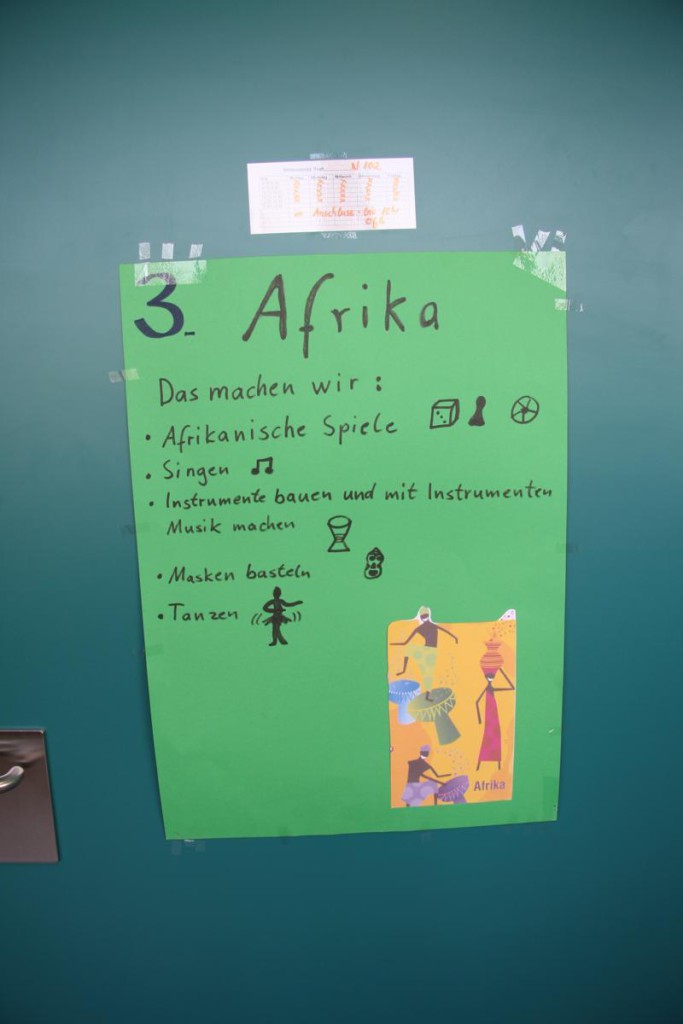 N 102
im Anschluss
3. Afrika
Das machen wir:
• Afrikanische Spiele
• Singen
• Instrumente bauen und mit Instrumenten
Musik machen
• Masken basteln
• Tanzen
Afrika